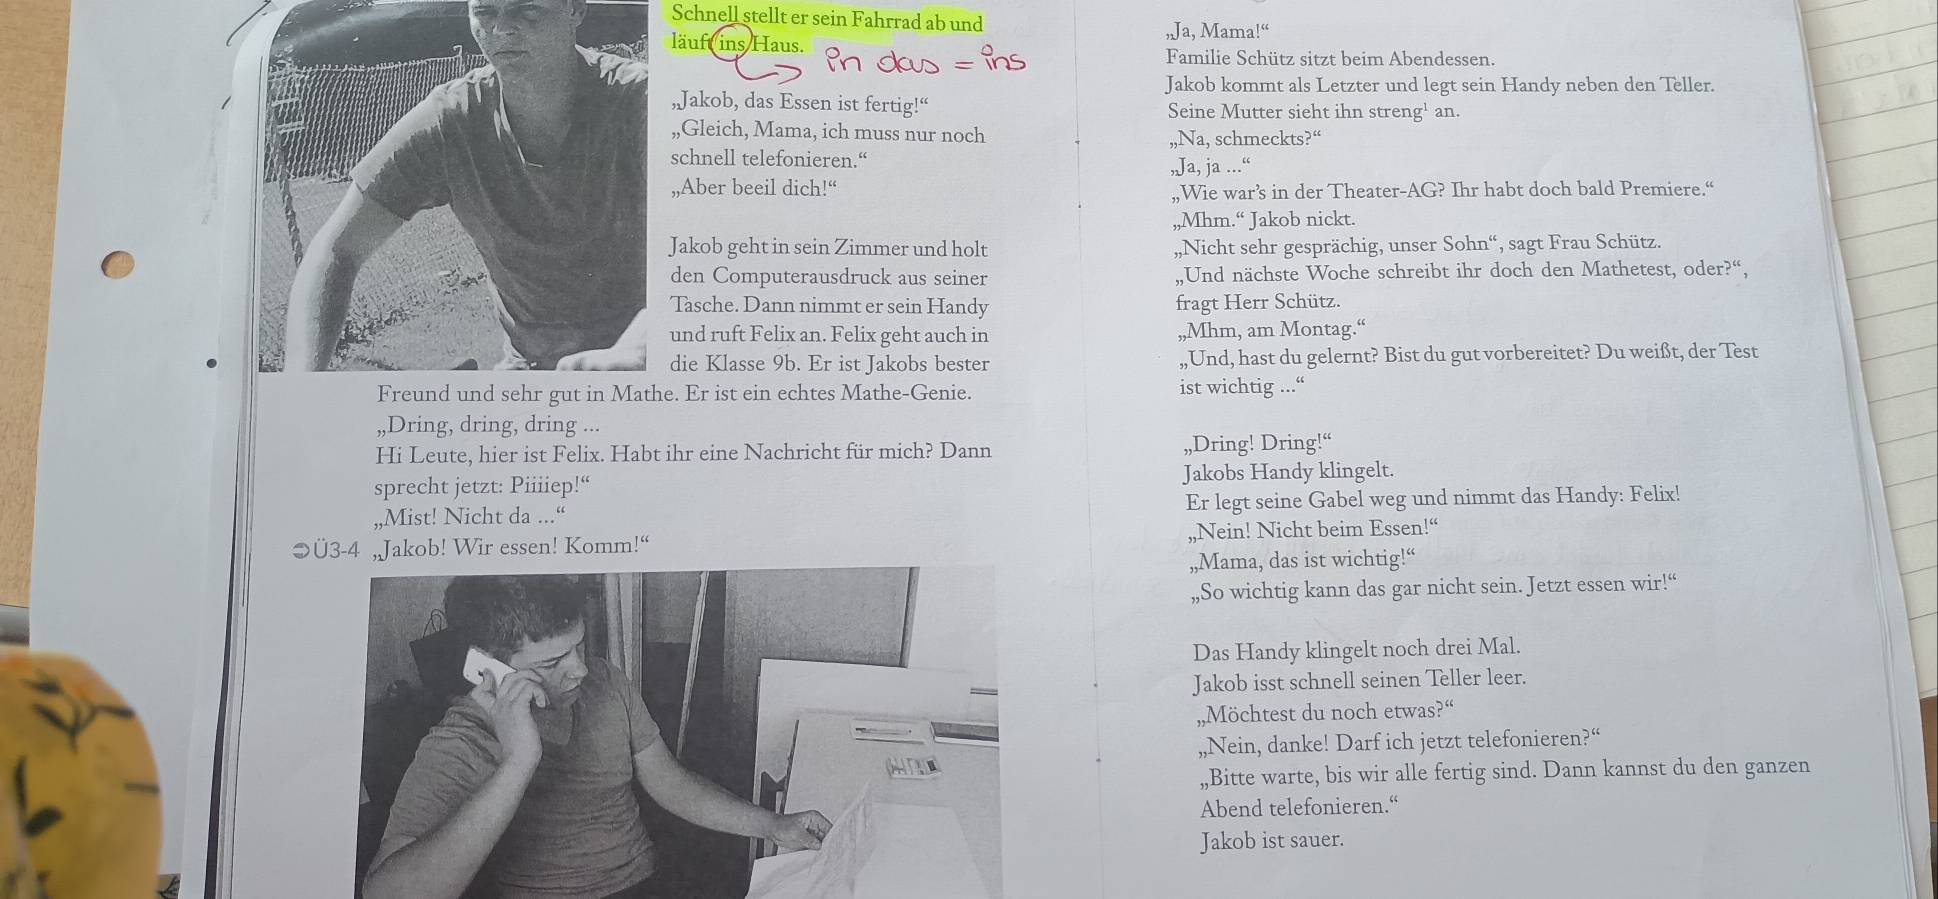 Schnell stellt er sein Fahrrad ab und
läuft ins Haus.
in das = ins
„Jakob, das Essen ist fertig!“
„Gleich, Mama, ich muss nur noch
schnell telefonieren.“
„Aber beeil dich!“
Jakob geht in sein Zimmer und holt
den Computerausdruck aus seiner
Tasche. Dann nimmt er sein Handy
und ruft Felix an. Felix geht auch in
die Klasse 9b. Er ist Jakobs bester
Freund und sehr gut in Mathe. Er ist ein echtes Mathe-Genie.
„Dring, dring, dring ...
Hi Leute, hier ist Felix. Habt ihr eine Nachricht für mich? Dann
sprecht jetzt: Piiiiep!“
„Mist! Nicht da ...“
➲Ü3-4 „Jakob! Wir essen! Komm!“
„Ja, Mama!“
Familie Schütz sitzt beim Abendessen.
Jakob kommt als Letzter und legt sein Handy neben den Teller.
Seine Mutter sieht ihn streng¹ an.
„Na, schmeckts?“
„Ja, ja ...“
„Wie war’s in der Theater-AG? Ihr habt doch bald Premiere.“
„Mhm.“ Jakob nickt.
„Nicht sehr gesprächig, unser Sohn“, sagt Frau Schütz.
„Und nächste Woche schreibt ihr doch den Mathetest, oder?“,
fragt Herr Schütz.
„Mhm, am Montag.“
„Und, hast du gelernt? Bist du gut vorbereitet? Du weißt, der Test
ist wichtig ...“
„Dring! Dring!“
Jakobs Handy klingelt.
Er legt seine Gabel weg und nimmt das Handy: Felix!
„Nein! Nicht beim Essen!“
„Mama, das ist wichtig!“
„So wichtig kann das gar nicht sein. Jetzt essen wir!“
Das Handy klingelt noch drei Mal.
Jakob isst schnell seinen Teller leer.
„Möchtest du noch etwas?“
„Nein, danke! Darf ich jetzt telefonieren?“
„Bitte warte, bis wir alle fertig sind. Dann kannst du den ganzen
Abend telefonieren.“
Jakob ist sauer.